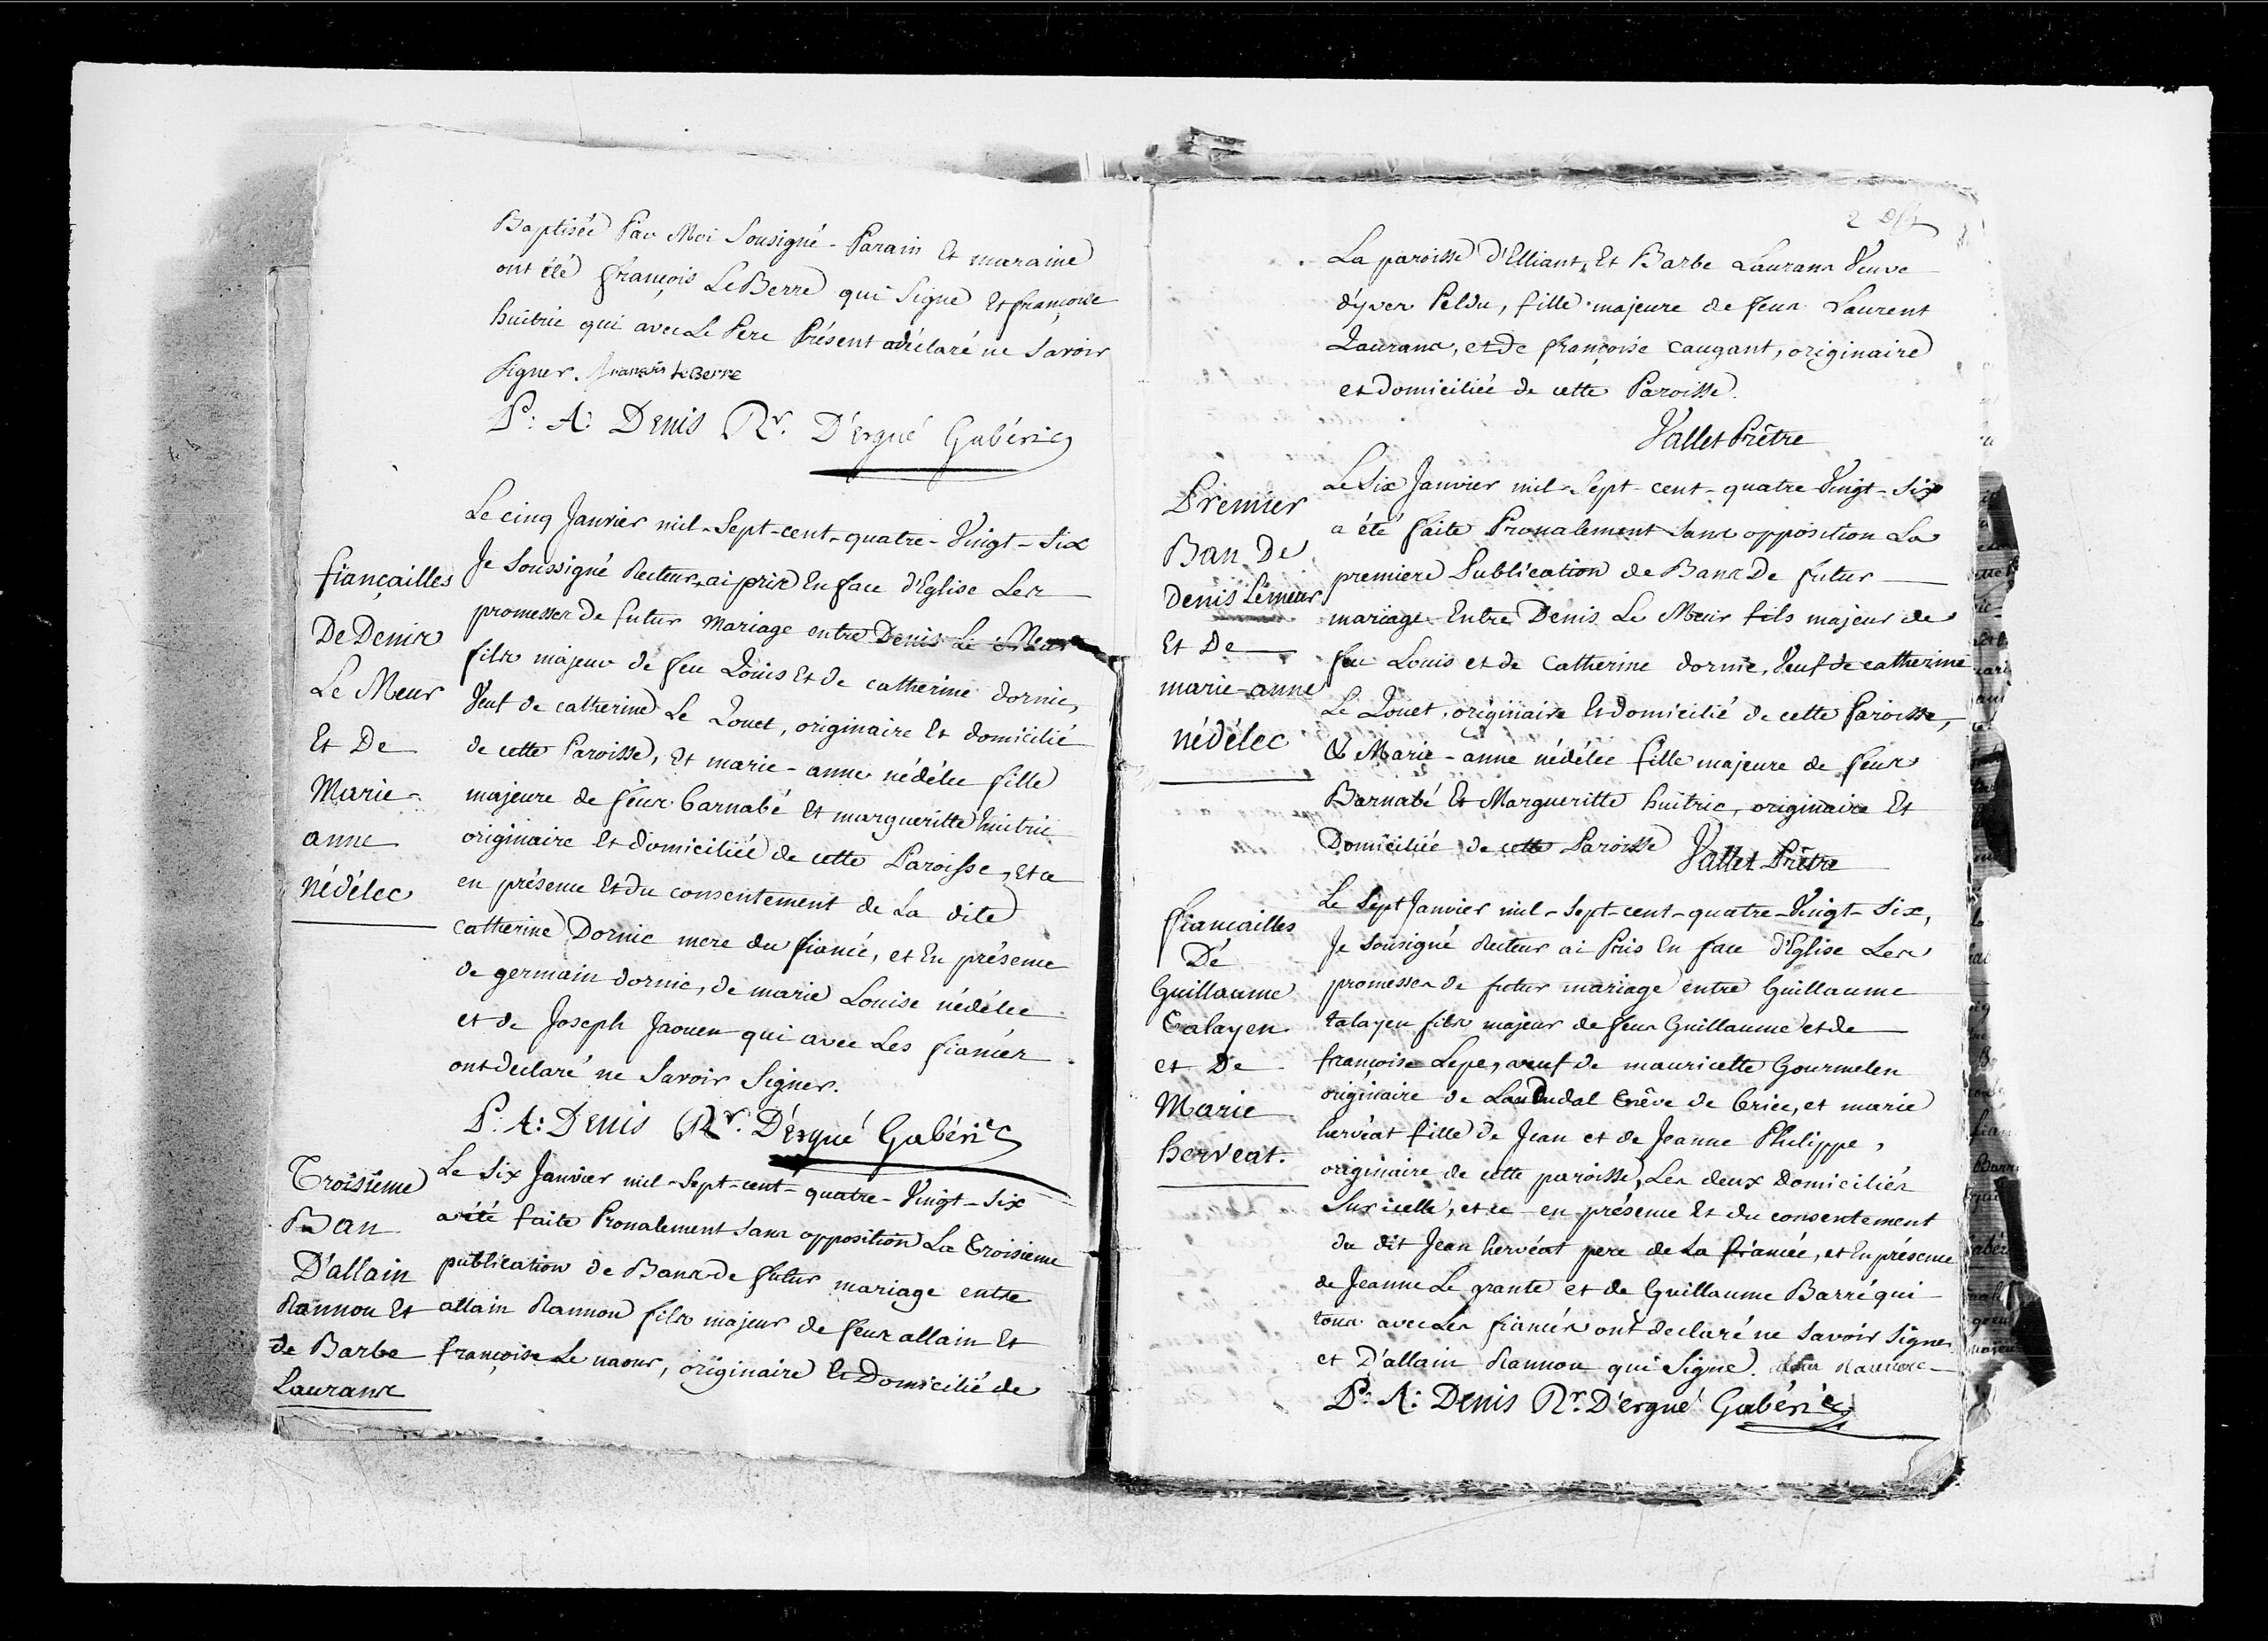 Baptisée Par Moi Sousigné - Parain Et maraine
ont été françois Le Berre qui Signe Et françoise
huitric qui avec Le Pere Présent a déclaré ne Savoir
Signer. françois Le Berre
P: A: Denis Rr. D'ergué Gabéric
fiançailles
De Denis
Le Meur
Et De
Marie-
anne
nédélec
Le cinq Janvier mil-Sept-cent-quatre-Vingt-Six
Je Soussigné Recteur, ai pris En face d'Eglise Les
promesses de futur mariage entre Denis Le Meur
fils majeur de feu Louis Et de catherine dornic,
Veuf de catherine Le Louet, originaire Et domicilié
de cette Paroisse, Et marie-anne nédélec fille
majeure de feux Barnabé Et margueritte huitric
originaire Et domiciliée de cette Paroisse, Et ce
en présence Et du consentement de La dite
catherine Dornic mere du fiancé, et En présence
de germain dornic, de marie Louise nédélec
et de Joseph Jaouen qui avec Les fiancés
ont declaré ne Savoir Signer.
P. A: Denis Rr. D'ergué Gabéric
Troisieme
Ban
D'allain
Rannou Et
de Barbe
Laurans
Le Six Janvier mil-Sept-cent-quatre-Vingt-Six
a été faite Pronalement Sans opposition La Troisieme
publication de Bans de futur mariage entre
allain Rannou fils majeur de feux allain Et
françoise Le naour, originaire Et Domicilié de
2
La paroisse d'Elliant, Et Barbe Laurans Veuve
d'yves Peldu, fille majeure de feux Laurent
Laurans, et de françoise caugant, originaire
et domiciliée de cette Paroisse.
Vallet Prêtre
Premier
Ban De
Denis Lemeur
Et De
marie-anne
nédélec
Le Six Janvier mil-Sept-cent-quatre-Vingt-Six
a été faite Pronalement Sans opposition La
premiere Publication de Bans De futur
mariage Entre Denis Le Meur fils majeur de
feu Louis et de Catherine dornic, Veuf de catherine
Le Louet, originaire Et domicilié de cette Paroisse,
Et Marie-anne nédélec fille majeure de feux
Barnabé Et Margueritte huitric, originaire Et
Domiciliée de cette Paroisse Vallet Prêtre
fiancailles
De
Guillaume
Talayen
et De
Marie
herveat.
Le Sept Janvier mil-Sept-cent-quatre-Vingt-Six,
Je Sousigné Recteur ai Pris En face d'Eglise Les
promesses de futur mariage entre Guillaume
talayen fils majeur de feux Guillaume et de
françoise Lepe, veuf de mauricette Gourmelen
originaire de Landudal trêve de briec, et marie
hervéat fille de Jean et de Jeanne Philippe,
originaire de cette paroisse, Les deux Domiciliés
Sur icelle, et ce en présence Et du consentement
du dit Jean hervéat pere de La fiancée, et En présence
de Jeanne Le grante et de Guillaume Barré qui
tous avec Les fiancés ont declaré ne Savoir Signer
et D'allain Rannou qui Signe.
P: A: Denis Rr. D'ergué Gabéric